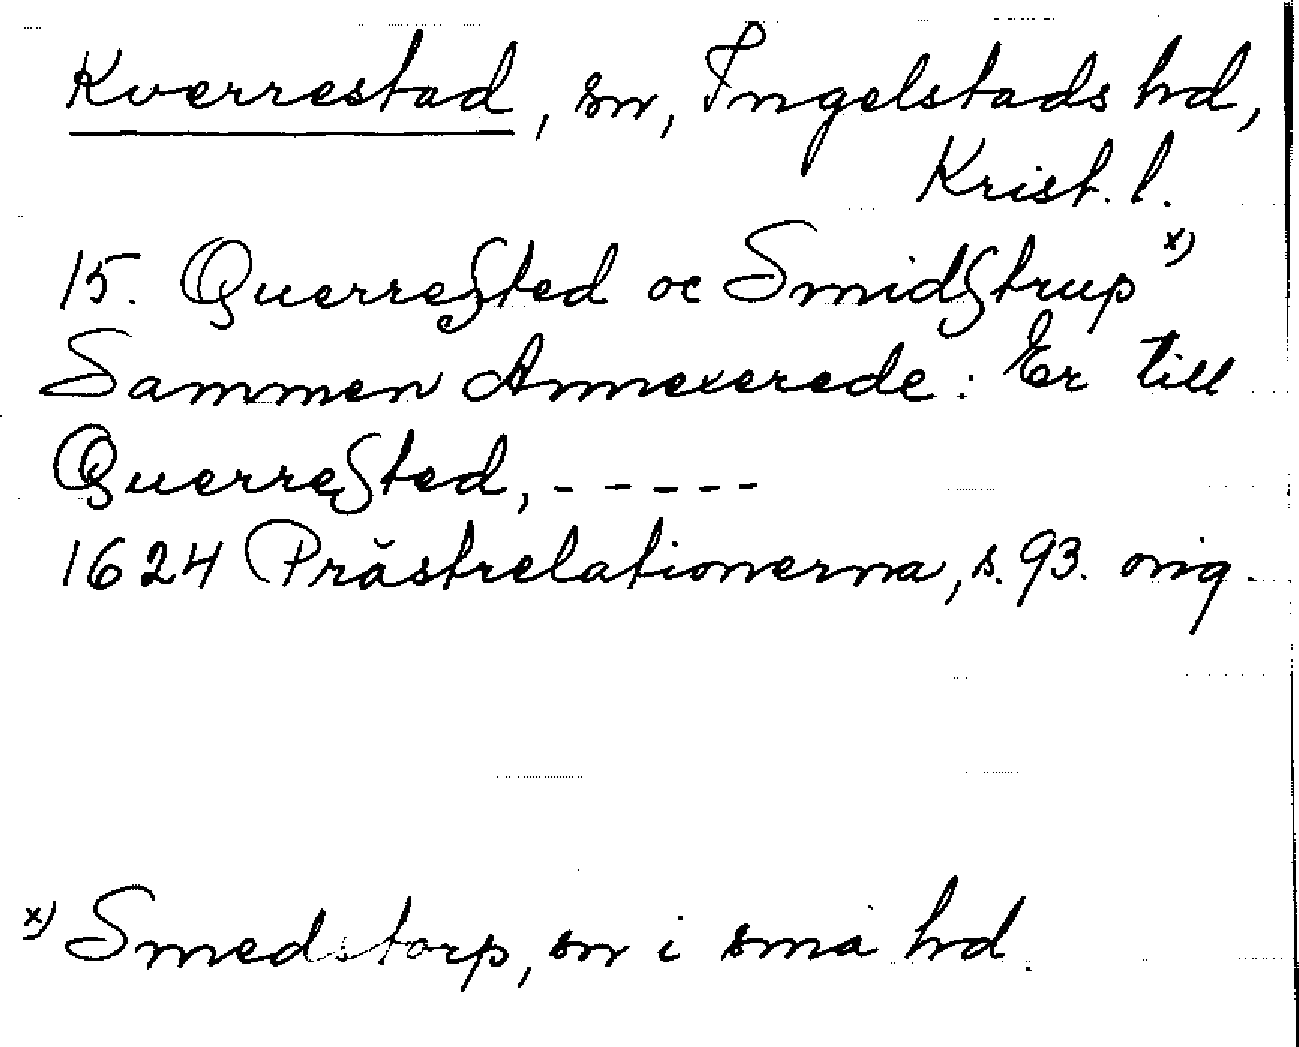 Kverrestad, sn, Ingelstads hd,
Krist. l.
15. Querrested oc Smidstrup x)
Sammen Annexerede: Er till
Querrested, - - - - -
1624 Prästrelationerna, s. 93. orig.
x) Smedstorp, sn i sma hd.